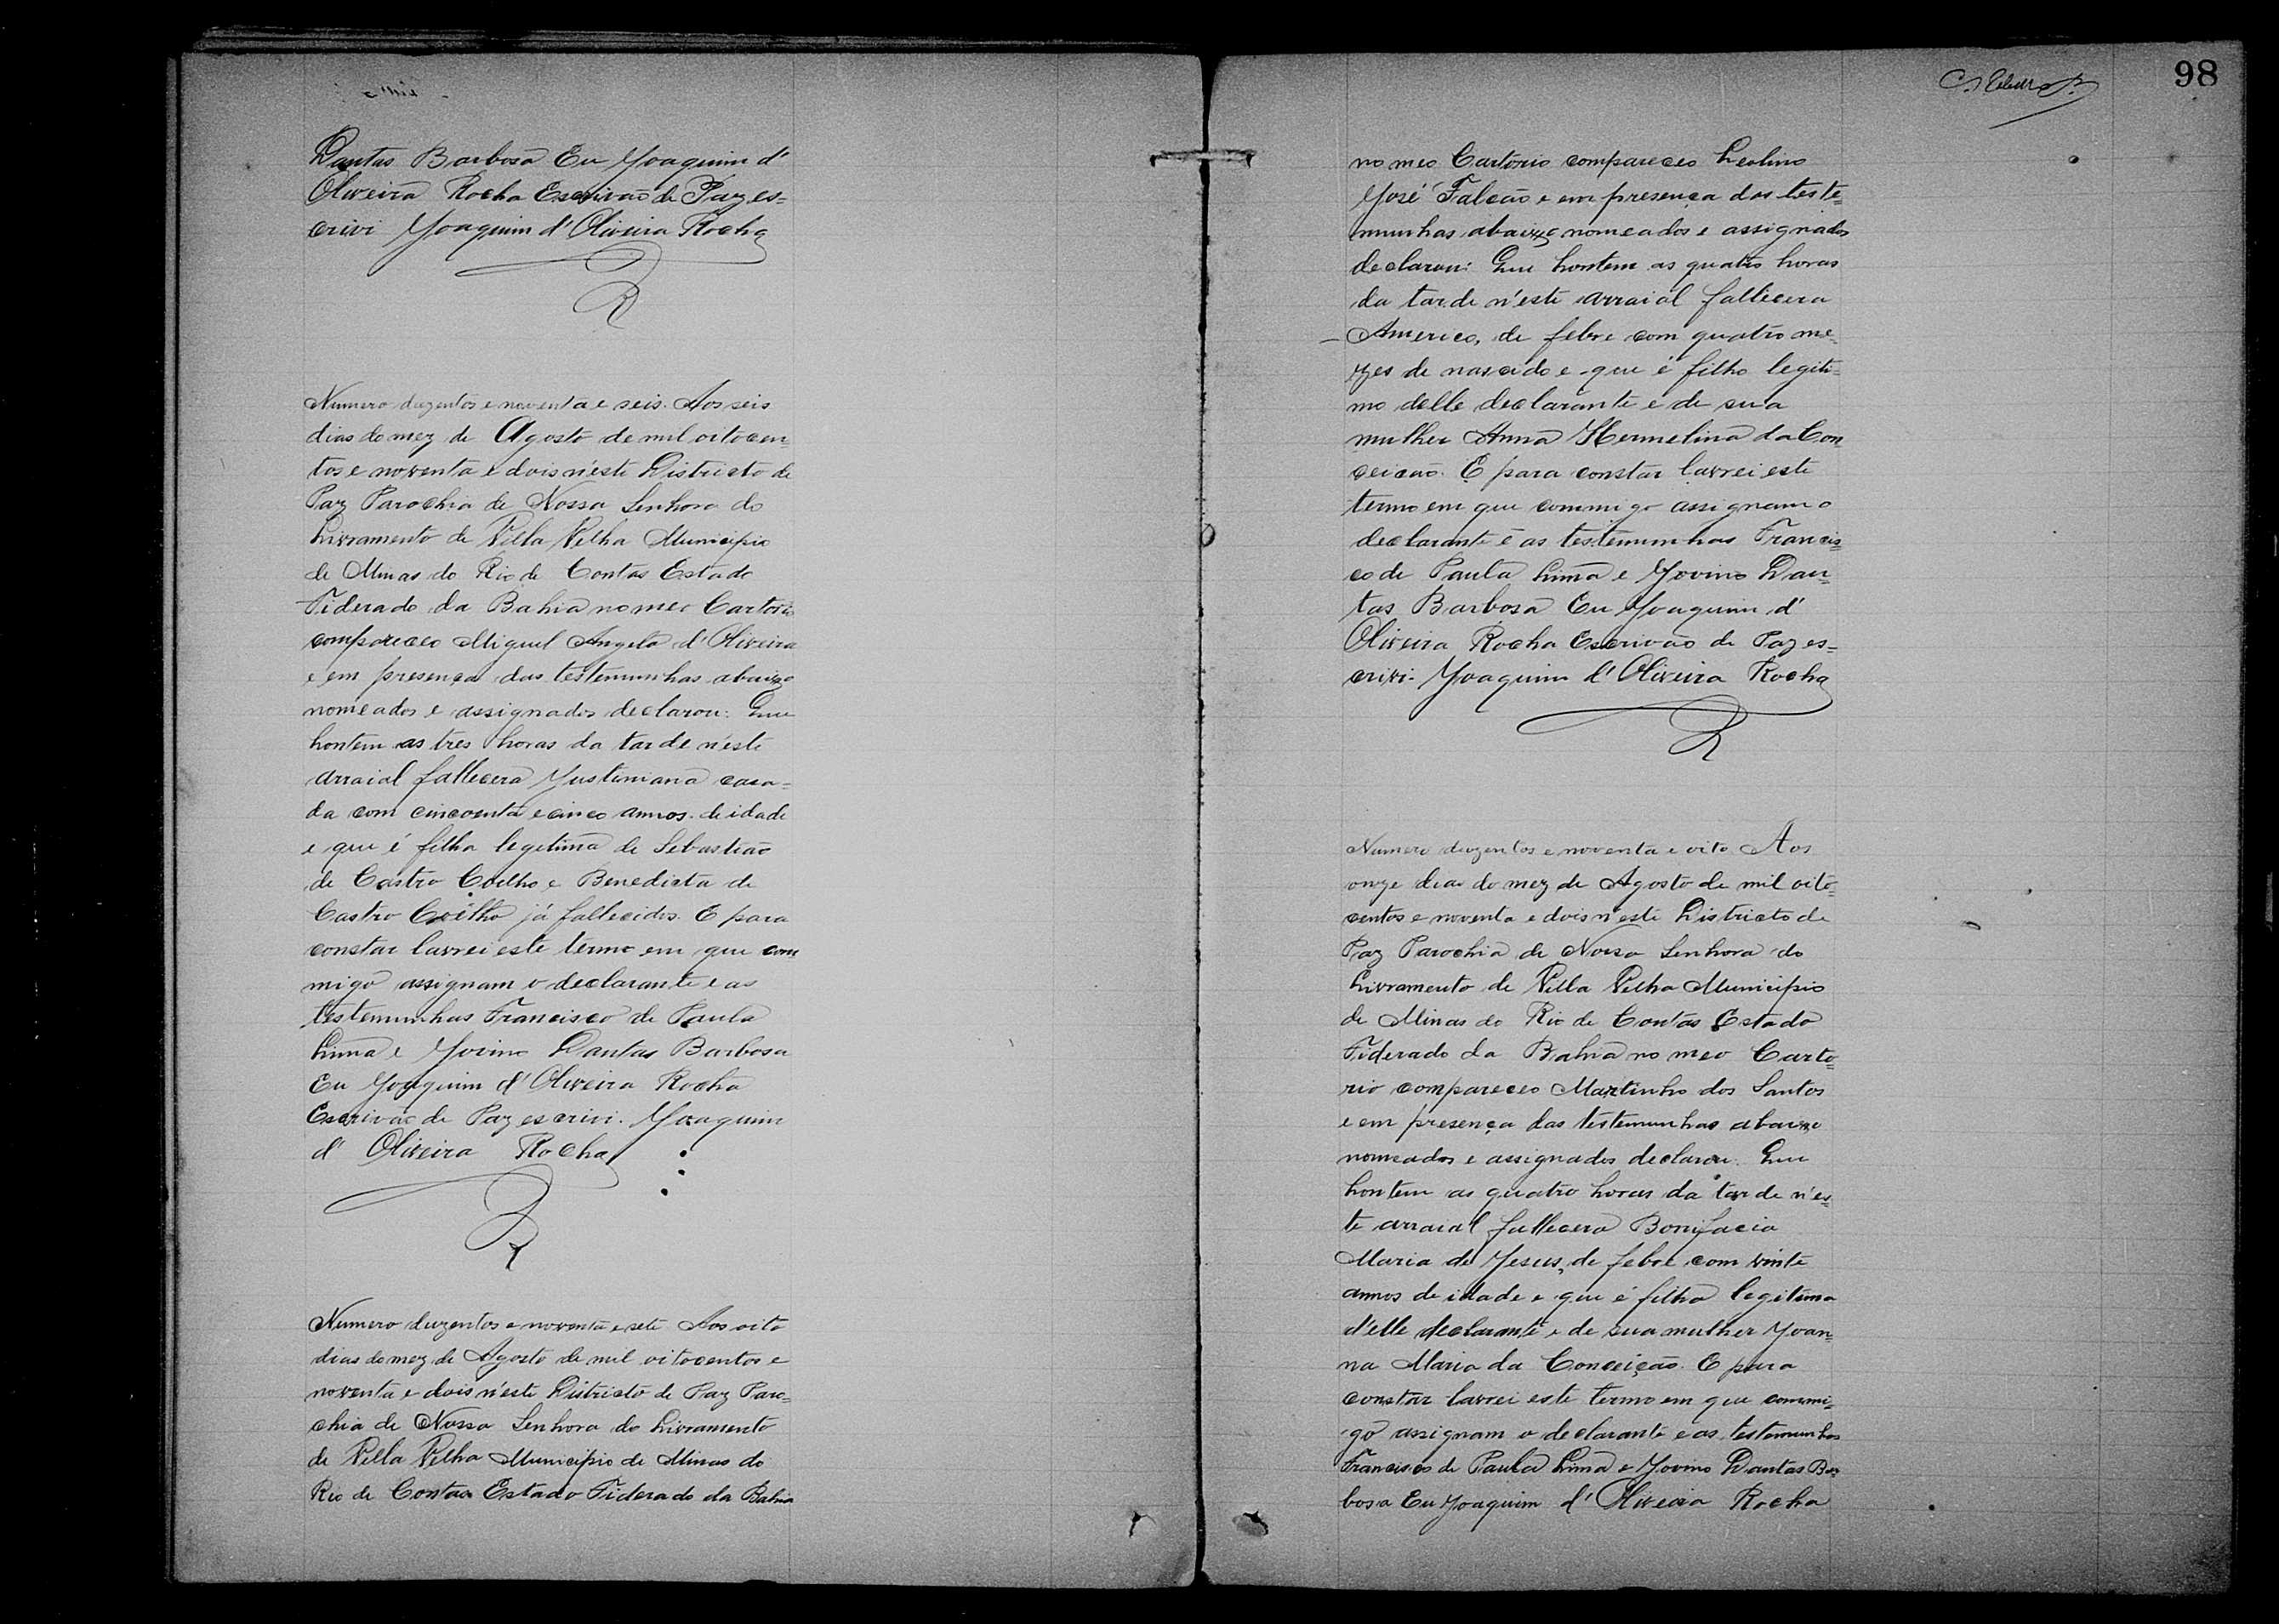 Dantas Barbosa Eu Joaquim d'
Oliveira Rocha Escrivão de Paz es=
crivi Joaquim d'Oliveira Rocha
R
Numero duzentos e noventa e seis. Aos seis
dias do mez de Agosto de mil oitocen
tos e noventa e dois n'este Districto de
Paz Parochia de Nossa Senhora do
Livramento de Villa Velha Municipio
de Minas do Rio de Contas Estado
Fiderado da Bahia no meo Cartorio
compareceo Miguel Angelo d'Oliveira
e em presença das testemunhas abaixo
nomeados e assignados declarou: Que
hontem as tres horas da tarde n'este
arraial fallecera Justiniana casa=
da com cincoenta e cinco annos de idade
e que é filha legitima de Sebastião
de Castro Coelho e Benedicta de
Castro Coelho já fallecidos. E para
constar lavrei este termo em que com
migo assignam o declarante e as
testemunhas Francisco de Paula
Lima e Jovino Dantas Barbosa
Eu Joaquim d'Oliveira Rocha
Escrivão de Paz escrivi. Joaquim
d' Oliveira Rocha
R
Numero duzentos e noventa e sete Aos oito
dias do mez de Agosto de mil oitocentos e
noventa e dois n'este Districto de Paz Paro=
chia de Nossa Senhora do Livramento
de Villa Velha Municipio de Minas do
Rio de Contas Estado Fiderado da Bahia
98
no meo Cartorio compareceo Leolino
José Falcão e em presença das teste=
munhas abaixo nomeados e assignados
declarou: Que hontem as quatro horas
da tarde n'este arraial fallecera
Americo, de febre com quatro me=
zes de nascido e que é filho legiti=
mo delle declarante e de sua
mulher Anna Hermelina da Con
ceicão. E para constar lavrei este
termo em que commigo assignam o
declarante e as testemunhas Francis=
co de Paula Lima e Jovino Dan=
tas Barbosa Eu Joaquim d'
Oliveira Rocha Escrivão de Paz es=
crivi. Joaquim d'Oliveira Rocha
R
Numero duzentos e noventa e oito Aos
onze dias do mez de Agosto de mil oito=
centos e noventa e dois n'este Districto de
Paz Parochia de Nossa Senhora do
Livramento de Villa Velha Municipio
de Minas do Rio de Contas Estado
Fiderado da Bahia no meo Carto=
rio compareceo Martinho dos Santos
e em presença das testemunhas abaixo
nomeados e assignados declarou. Que
hontem as quatro horas da tarde n'es=
te arraial fallecera Bonifacia
Maria de Jesus, de febre com vinte
annos de idade e que é filha legitima
d'elle declarante e de sua mulher Joan=
na Maria da Conceição. E para
constar lavrei este termo em que commi=
go assignam o declarante e as testemunhas
Francisco de Paula Lima e Jovino Dantas Bar
bosa Eu Joaquim d'Oliveira Rocha